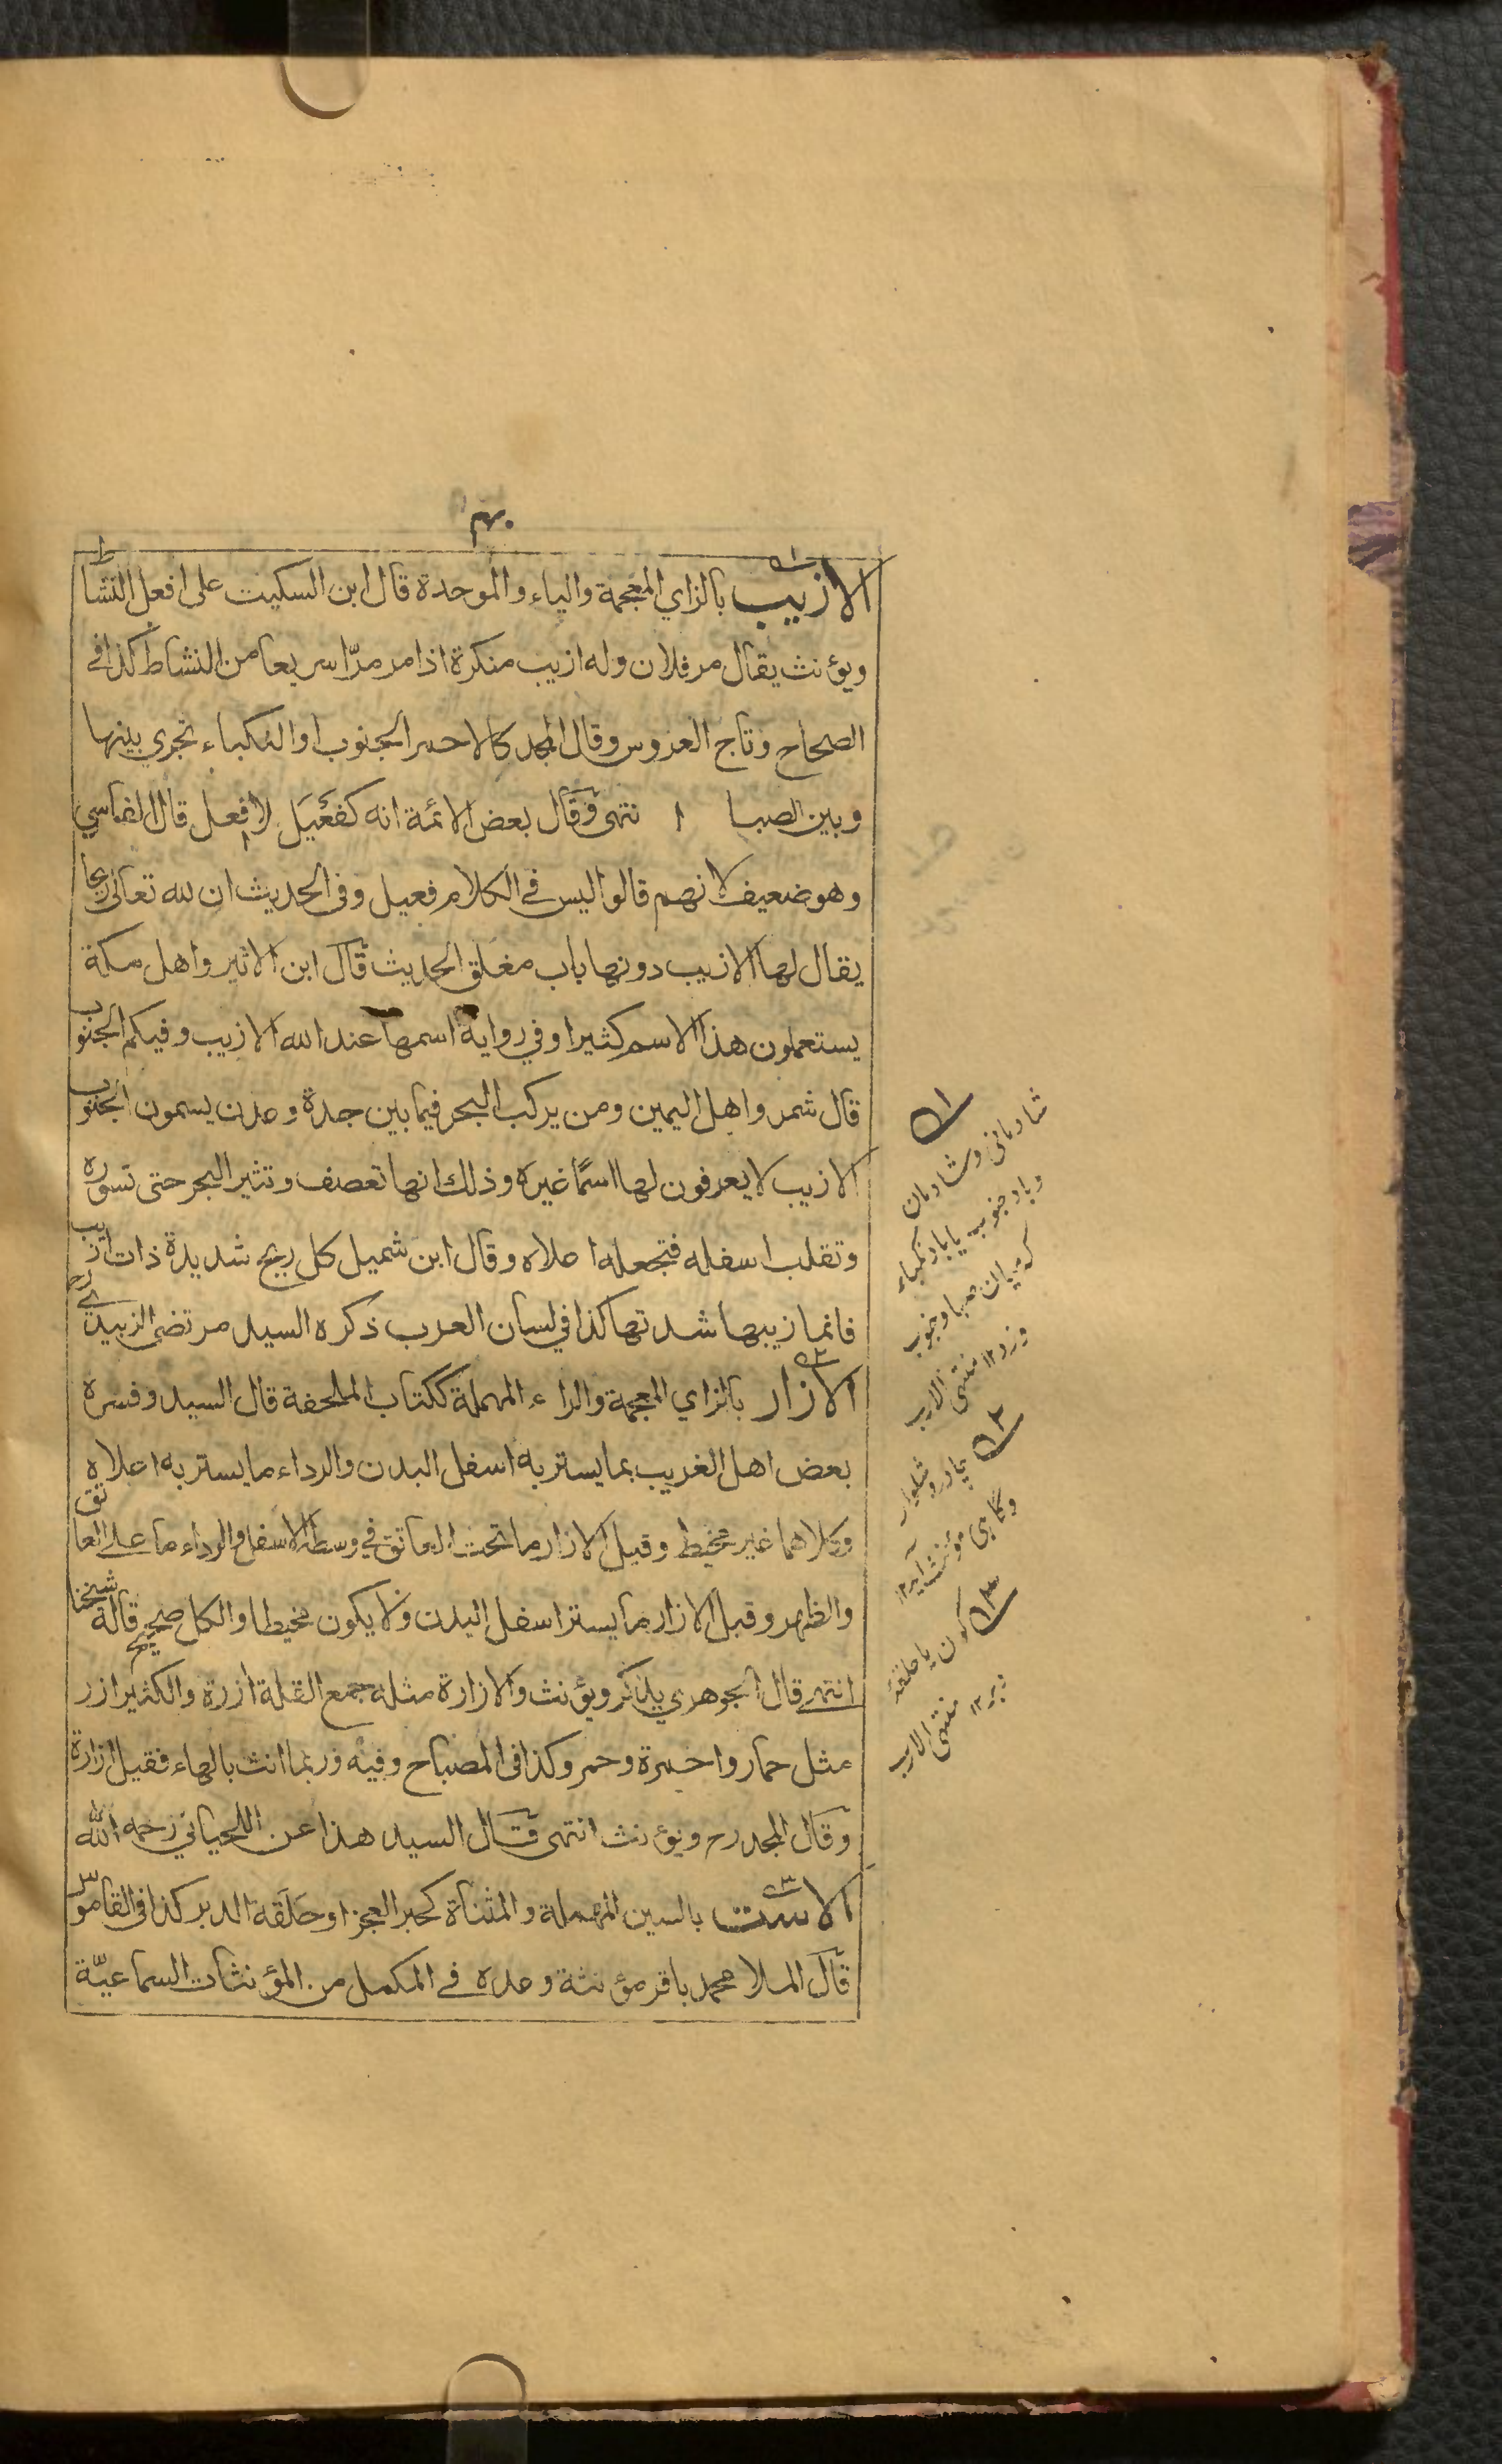 ۴۰
الازيب بالزاي المعجمة والياء والموحدة قال ابن السكيت على افعل النشاط
ويؤنث يقال مر فلان وله ازيب منكرة اذا مر مرّا سريعا من النشاط كذا في
الصحاح وتاج العروس وقال المجد كالاحمر الجنوب او النكباء تجري بينها
وبين الصبا ا نتهى وقال بعض الائمة انه كفَعْيَل لا افعل قال الفاسي
وهو ضعيف لانهم قالوا ليس في الكلام فعيل وفي الحديث ان لله تعالى ريحا
يقال لها الازيب دونها باب مغلق الحديث قال ابن الاثير واهل مكة
يستعملون هذا الاسم كثيرا وفي رواية اسمها عند الله الازيب وفيكم الجنوب
قال شمر واهل اليمين ومن يركب البحر فيما بين جدة وعدن يسمون الجنوب
الازيب لا يعرفون لها اسمًا غيره وذلك انها تعصف وتثير البحر حتى تسوره
وتقلب اسفله فتجعله اعلاه وقال ابن شميل كل ريح شديدة ذات ازيب
فانما زيبها شدتها كذا في لسان العرب ذكره السيد مرتضى الزبيدي رح
الازار بالزاي المعجمة والراء المهملة ككتاب الملحفة قال السيد وفسره
بعض اهل الغريب بما يستر به اسفل البدن والرداء ما يستر به اعلاه
وكلاهما غير مخيط وقيل الازار ما تحت العاتق في وسطه الاسفل والرداء ما على العاتق
والظهر وقيل الازار ما يستر اسفل البدن ولا يكون مخيطا والكل صحيح قاله شيخنا
انتهى قال الجوهري يذكر ويؤنث والازارة مثله جمع القلة ازرة والكثير ازر
مثل حمار واحمرة وحمر وكذا في المصباح وفيه وربما انث بالهاء فقيل ازارة
وقال المجد رح ويؤنث انتهى قال السيد هذا عن اللحياني رحمه الله
الاست بالسين المهملة والمثناة كحبر العجز او حلقة الدبر كذا في القاموس
قال الملا محمد باقر مؤنثة وعده في المكمل من المؤنثات السماعيّة
۱
شادمانى وشادمان
وباد جنوب يا باد نكباء
كه ميان صبا وجنوب
وزد ۱۲ منتهى الارب
۲
چادر وشلوار
وگاهى مؤنث آيد ۱۲
۳
كون يا حلقه
دبر ۱۲ منتهى الارب